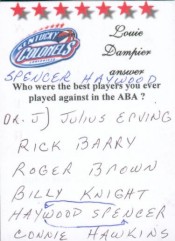 KENTUCKY
COLONELS
Louie
Dampier
answer
SPENCER HAYWOOD
Who were the best players you ever
played against in the ABA ?
DR. J) JULIUS ERVING
RICK BARRY
ROGER BROWN
BILLY KNIGHT
HAYWOOD SPENCER
CONNIE HAWKINS